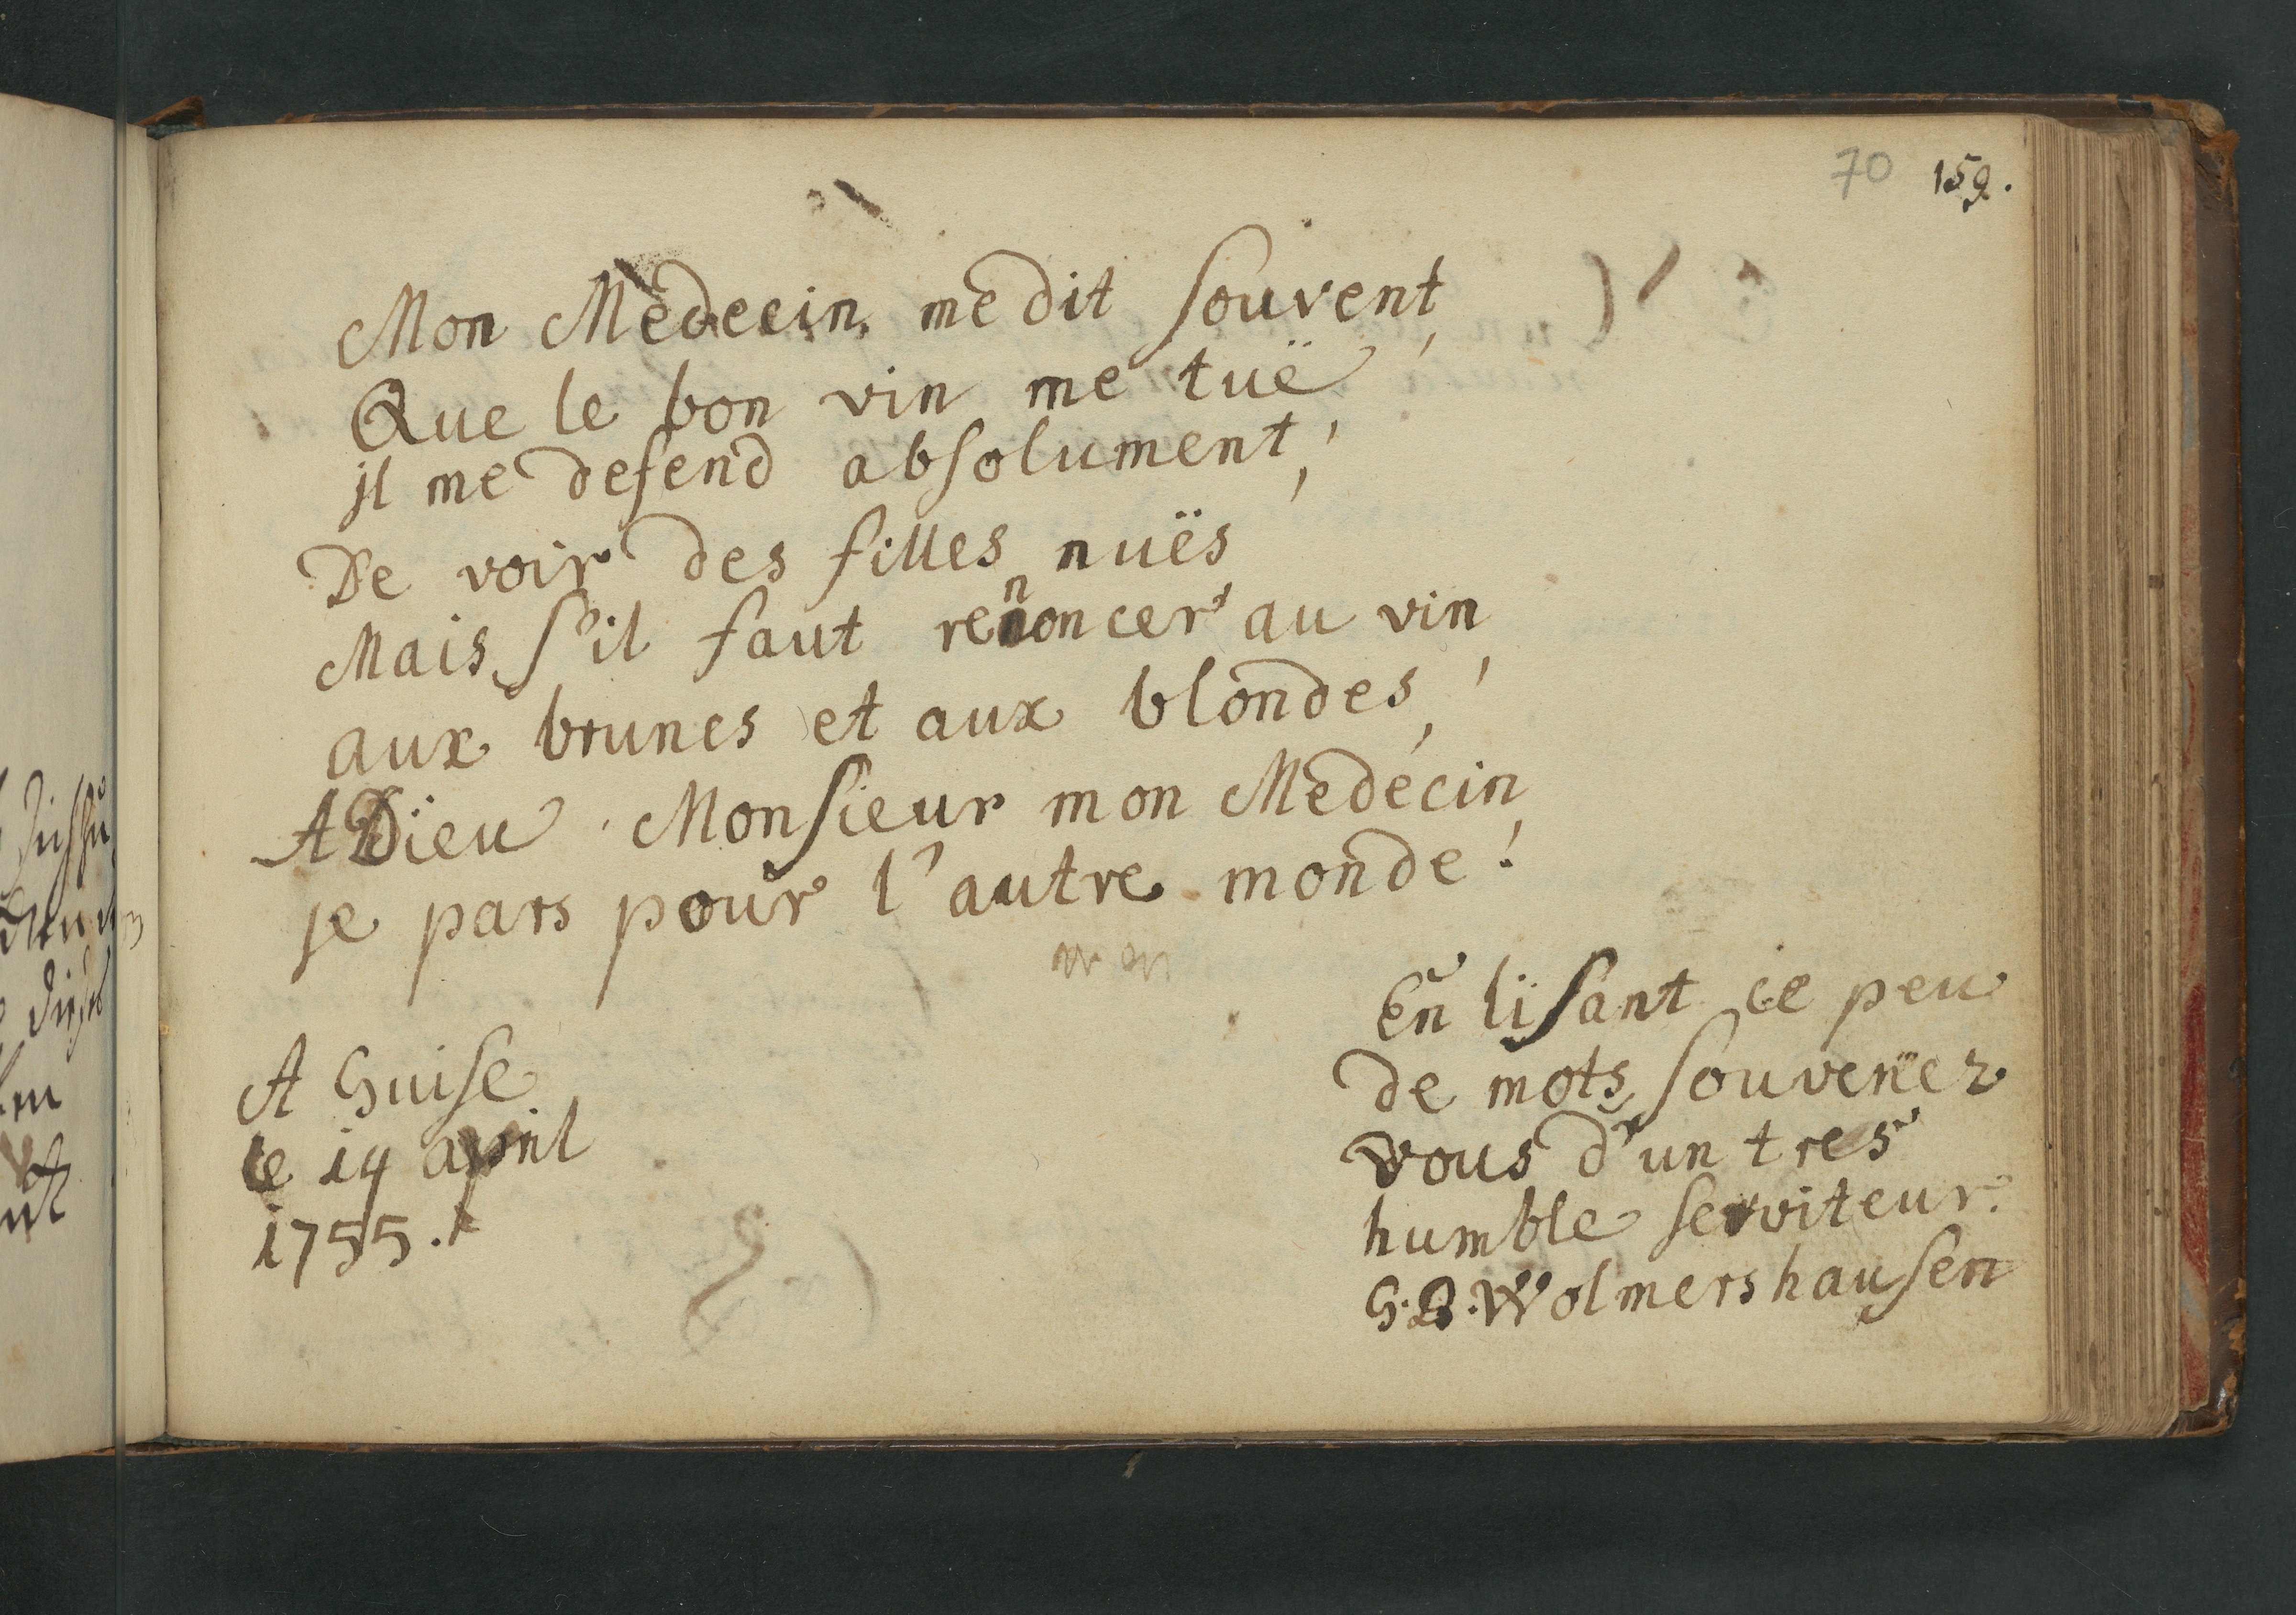 70 159.
Mon Medecin me dit souvent,
Que le bon vin me tuë,
jl me defend absolument,
De voir des filles nuës
Mais s'il faut renoncer au vin,
aux brunes et aux blondes,
A Dieu Monsieur mon Medécin,
je pars pour l'autre monde!
A Guise
le 14 april
1755.
En lisant ce peu
de mots souvenez
vous d'un tres
humble serviteur.
Wolmershausen